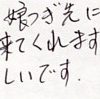 娘つぎ先に
来てくれます
しいです.